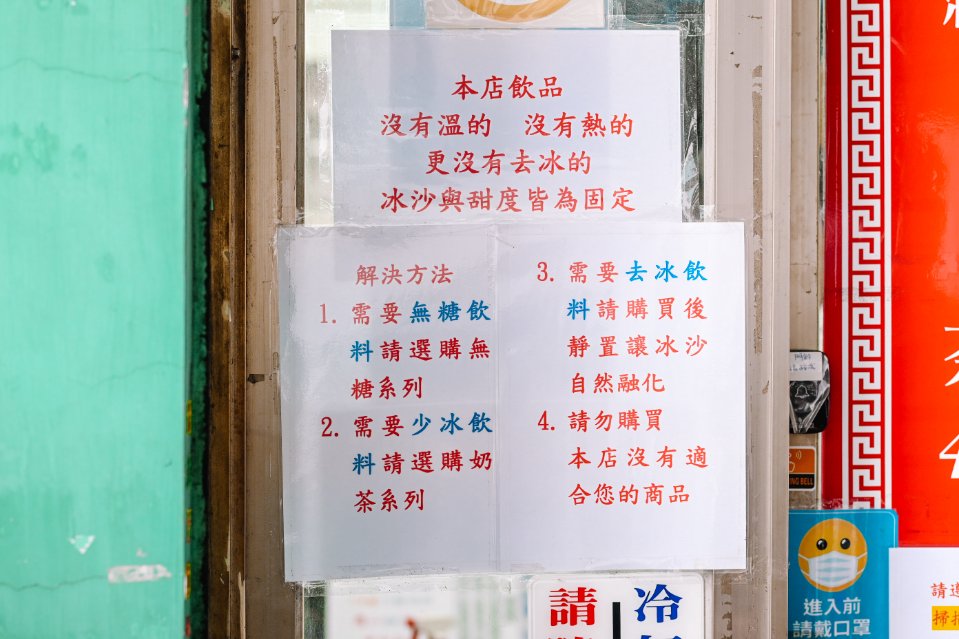 本店飲品
沒有溫的　沒有熱的
更沒有去冰的
冰沙與甜度皆為固定
解決方法
1. 需要無糖飲
料請選購無
糖系列
2. 需要少冰飲
料請選購奶
茶系列
3. 需要去冰飲
料請購買後
靜置讓冰沙
自然融化
4. 請勿購買
本店沒有適
合您的商品
請
冷
進入前
請戴口罩